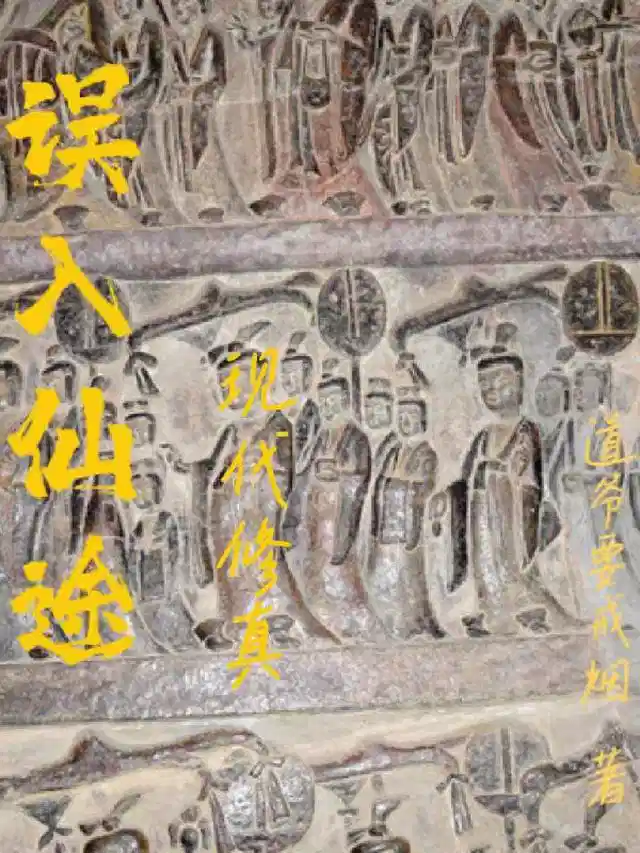 误入仙途
现代修真
道爷要戒烟 著